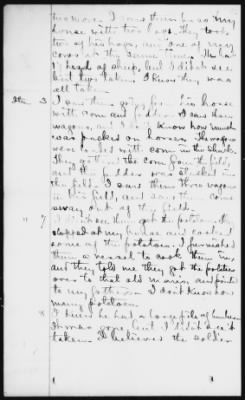 two more. I saw them pass my
house with two hogs, they took
two of his hogs, and one of my
cows at the same time. He had
head of sheep, but I didn't see
but two taken. I know they was
all taken.
Item 3 I saw them going from his house
with corn and fodder. I saw them
wagons, and I know how much
was packed on horses. The wagons
were loaded with corn in the shuck.
They got the corn from the field,
and the fodder was stacked in
the field. I saw them three wagons
in his field, and saw come
away out of the field.
" 7 I saw them get the potatoes. They
stopped at my house and cooked
some of the potatoes. I furnished
them a vessel to cook them in,
and they told me they got the potatoes
over to that old man's, and pointed
to my father's. I don't know how
many potatoes.
" 8 I knew he had a large pile of lumber
It was gone, but I didn't see it
taken. I believe the soldier